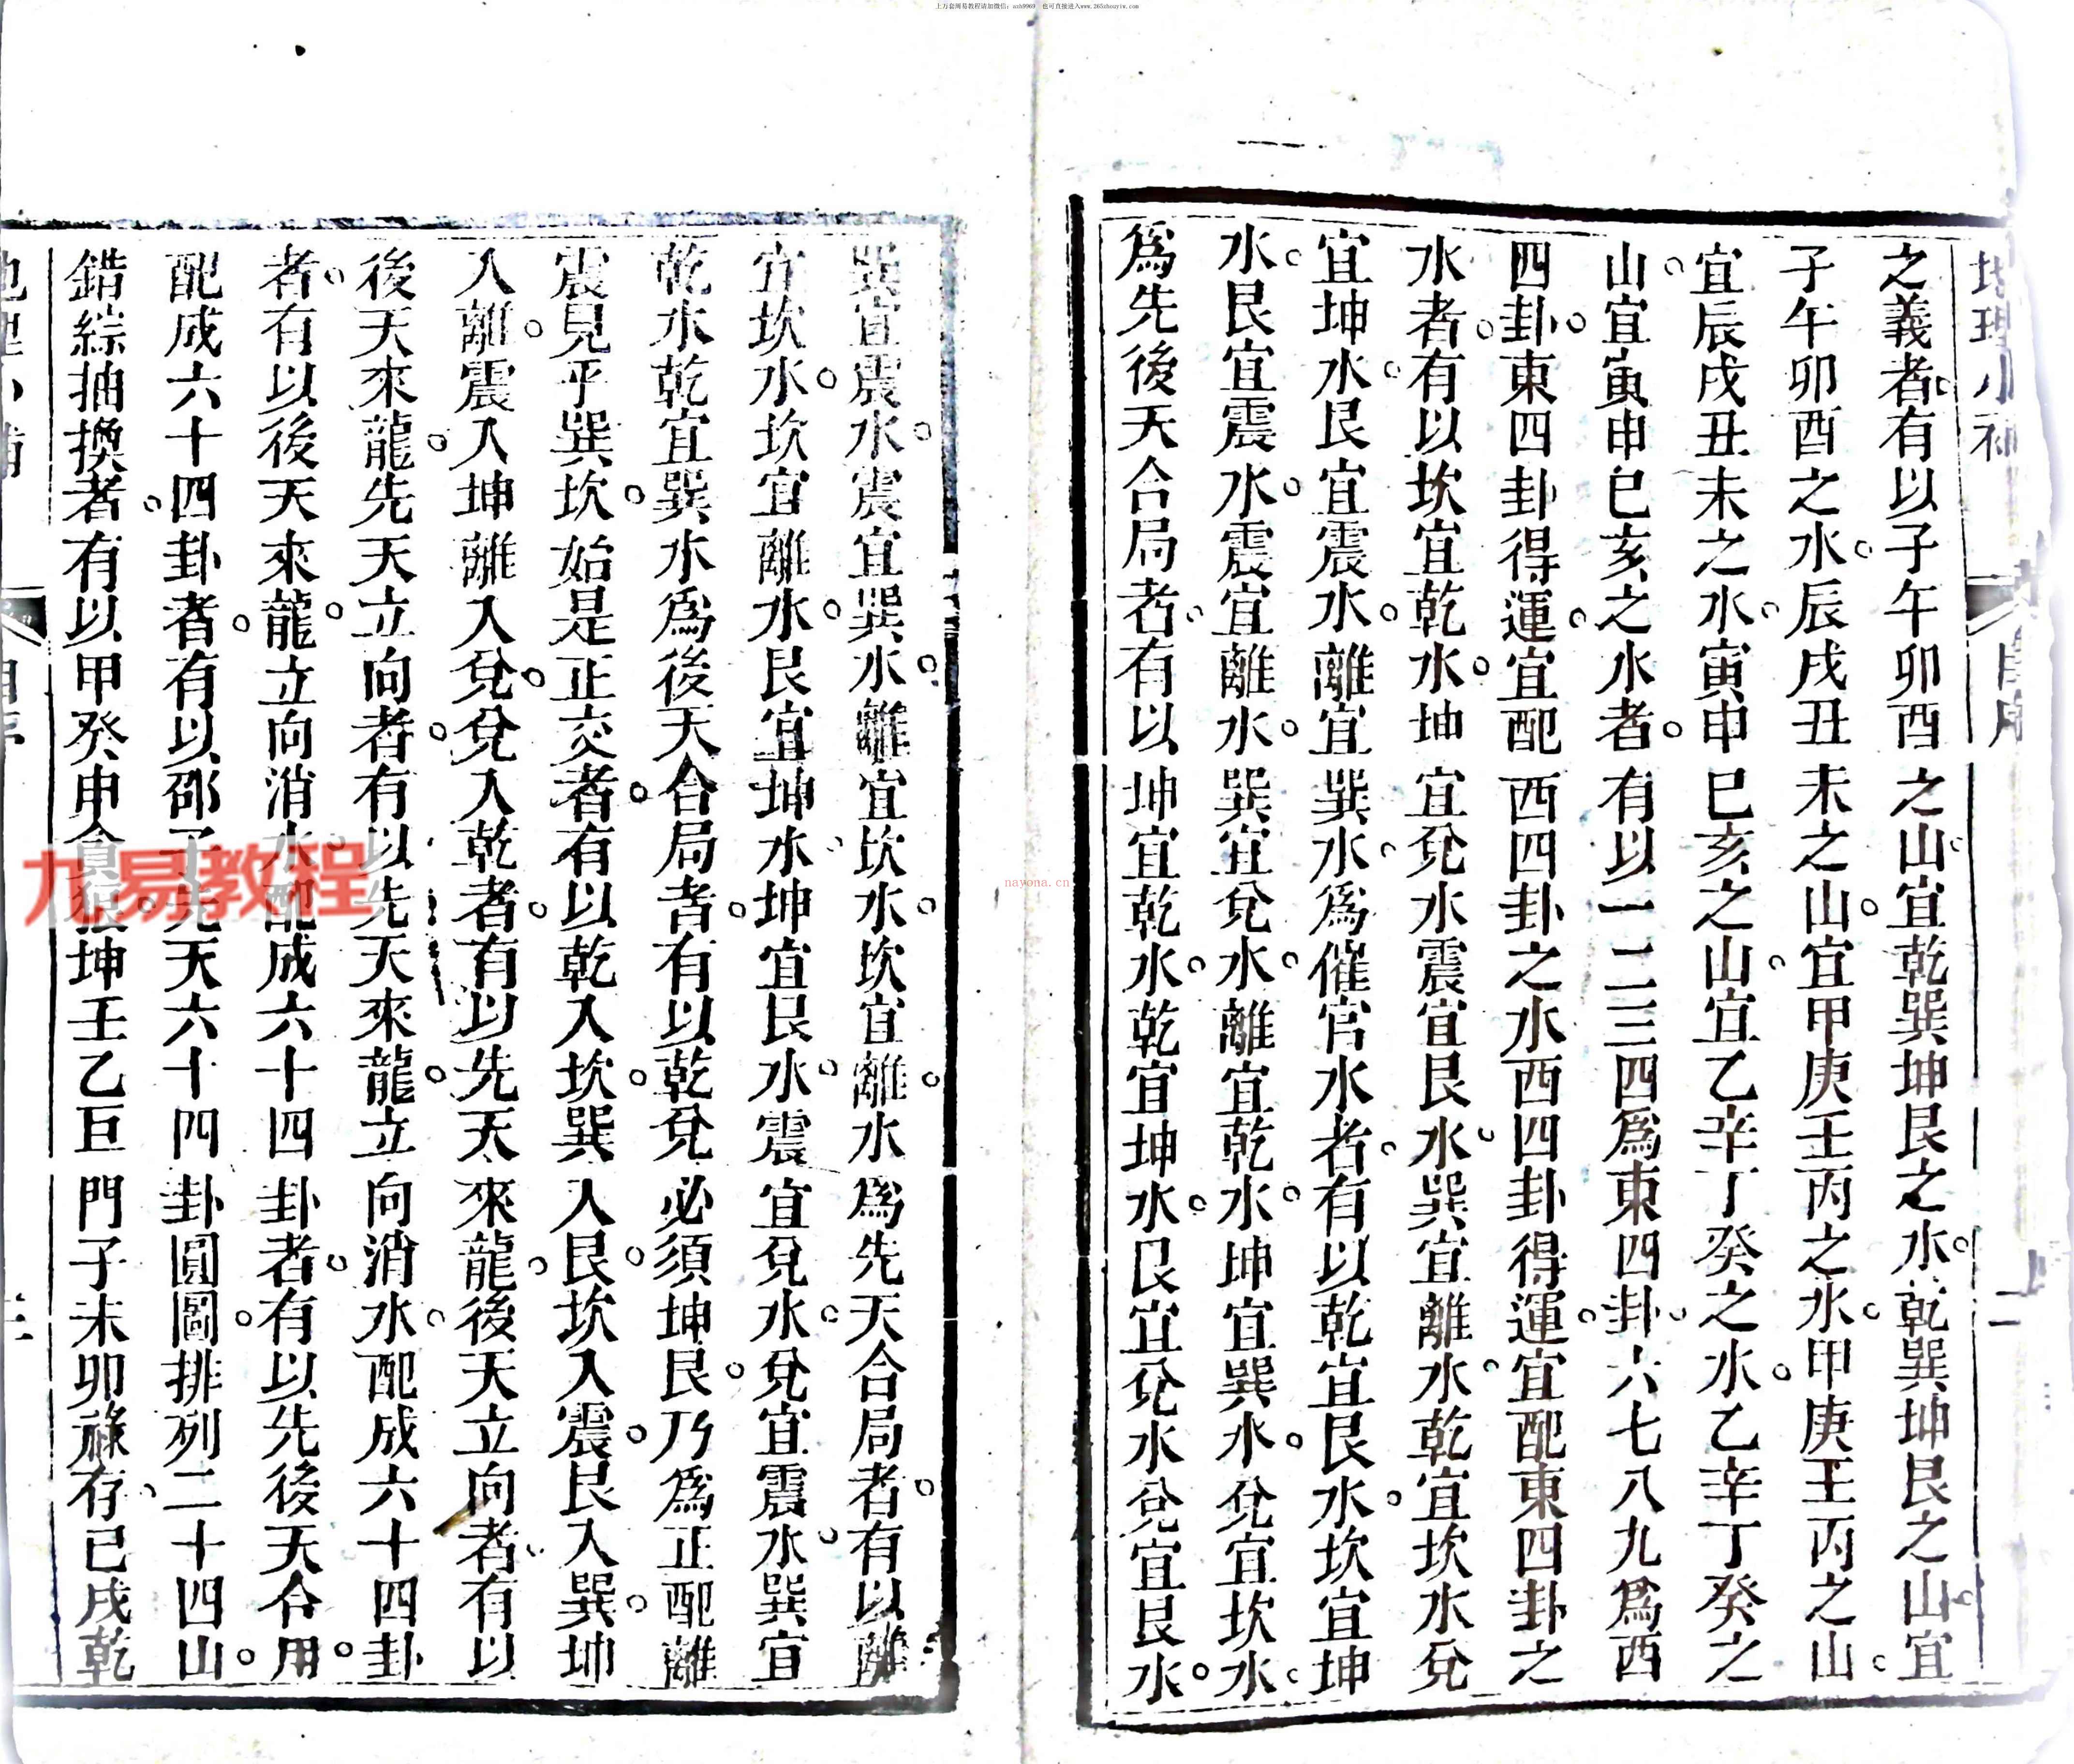 上万套周易教程请加微信：
也可直接进入www.265zhouyiw.com
之義者有以子午卯酉之山宜乾巽坤艮之水乾巽坤艮之山宜
子午卯酉之水辰戌丑未之山宜甲庚壬丙之水甲庚壬丙之山
宜辰戌丑未之水寅申巳亥之山宜乙辛丁癸之水乙辛丁癸之
山宜寅申巳亥之水者有以一二三四爲東四卦六七八九爲西
四卦東四卦得運宜配西四卦之水西四卦得運宜配東四卦之
水者有以坎宜乾水坤宜兌水震宜艮水巽宜離水乾宜坎水兌
宜坤水艮宜震水離宜巽水爲催官水者有以乾宜艮水坎宜坤
水艮宜震水震宜離水巽宜兌水離宜乾水坤宜巽水兌宜坎水
爲先後天合局者有以坤宜乾水乾宜坤水艮宜兌水兌宜艮水
巽宜震水震宜巽水離宜坎水坎宜離水爲先天合局者有以離
宜坎水坎宜離水艮宜坤水坤宜艮水震宜兌水兌宜震水巽宜
乾水乾宜巽水爲後天合局者有以乾兌必須坤艮乃爲正配離
震見乎巽坎始是正交者有以乾入坎巽入艮坎入震艮入巽坤
入離震入坤離入兌兌入乾者有以先天來龍後天立向者有以
後天來龍先天立向者有以先天來龍立向消水配成六十四卦
者有以後天來龍立向消水配成六十四卦者有以先後天合用
配成六十四卦者有以邵子先天六十四卦圓圖排列二十四山
錯綜抽換者有以甲癸申貪狼坤壬乙巨門子未卯祿存巳戌乾
地理小補
自序
二
九易教程
nayona.cn